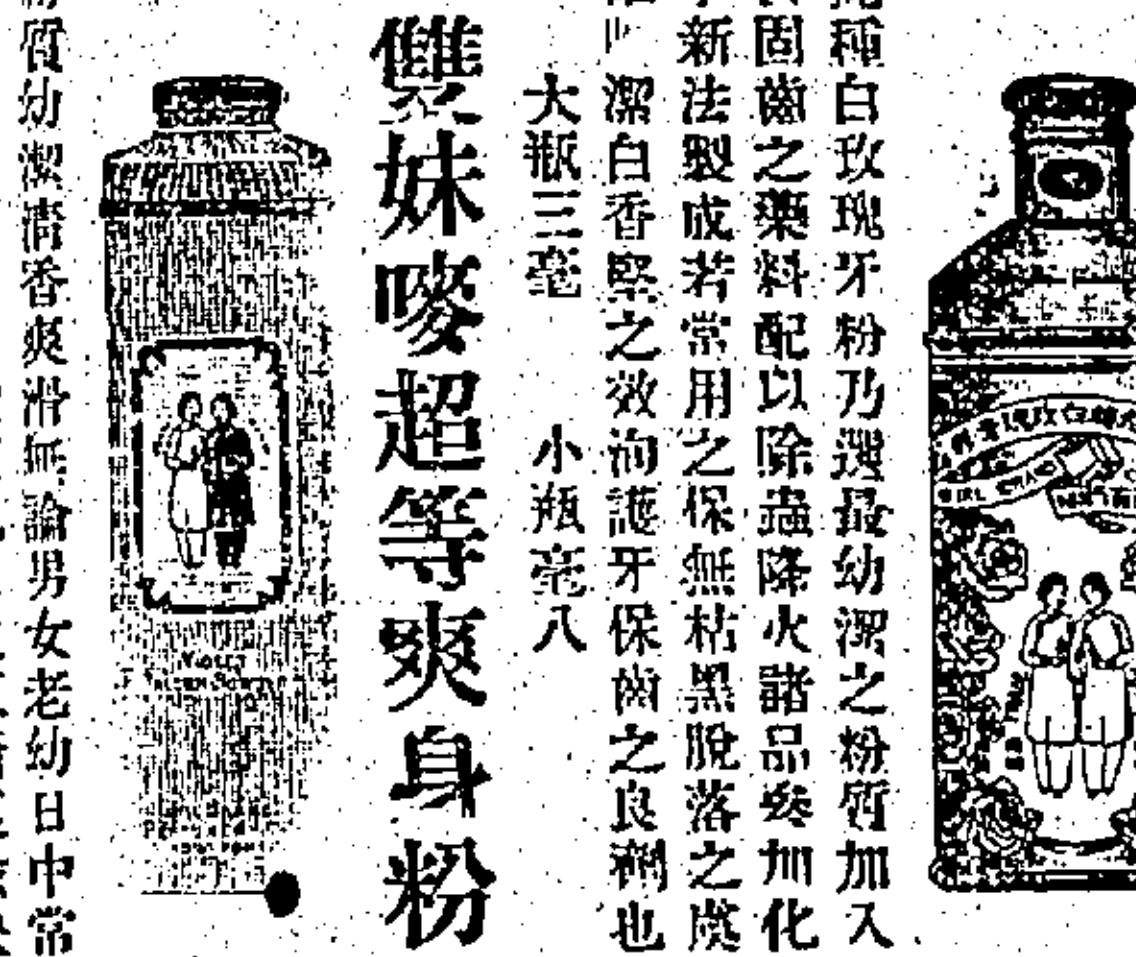 種白玫瑰牙粉乃選最幼潔之粉質加入
固齒之藥料配以除蟲降火諸品、加化
新法製成若常用之保無枯黑脫落之虞
潔白香堅之效洵護牙保齒之良劑也
大瓶三毫 小瓶毫八
雙妹嘜超等爽身粉
質幼潔清香爽滑無論男女老幼日中常
VIOLET
GIRL BRAND